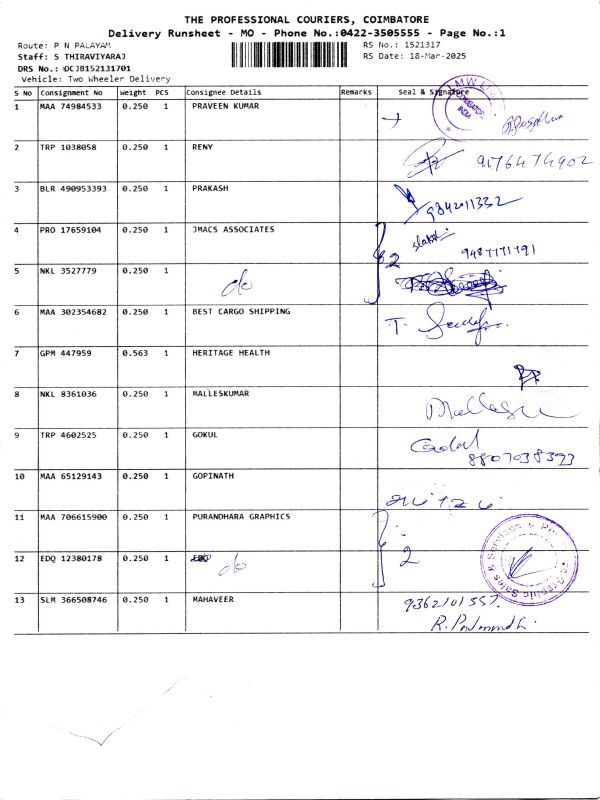 THE PROFESSIONAL COURIERS, COIMBATORE
Delivery Runsheet - MO - Phone No.:0422-3505555 - Page No.:1
Route: P N PALAYAM RS No.: 1521317
Staff: S THIRAVIYARAJ RS Date: 18-Mar-2025
DRS No.: DCJB152131701
Vehicle: Two Wheeler Delivery
S NO Consignment No Weight PCS Consignee Details Remarks Seal & Signature
1 MAA 74984533 0.250 1 PRAVEEN KUMAR
INDIA
2 TRP 1038058 0.250 1 RENY 9176474902
3 BLR 490953393 0.250 1 PRAKASH 9842011332
4 PRO 17659104 0.250 1 JMACS ASSOCIATES 2 9487771791
5 NKL 3527779 0.250 1 do
6 MAA 302354682 0.250 1 BEST CARGO SHIPPING T.
7 GPM 447959 0.563 1 HERITAGE HEALTH
8 NKL 8361036 0.250 1 MALLESKUMAR
9 TRP 4602525 0.250 1 GOKUL
8807038393
10 MAA 65129143 0.250 1 GOPINATH
11 MAA 706615900 0.250 1 PURANDHARA GRAPHICS 2
12 EDQ 12380178 0.250 1 do
Sales & Services
13 SLM 366508746 0.250 1 MAHAVEER 9362101557.
R.